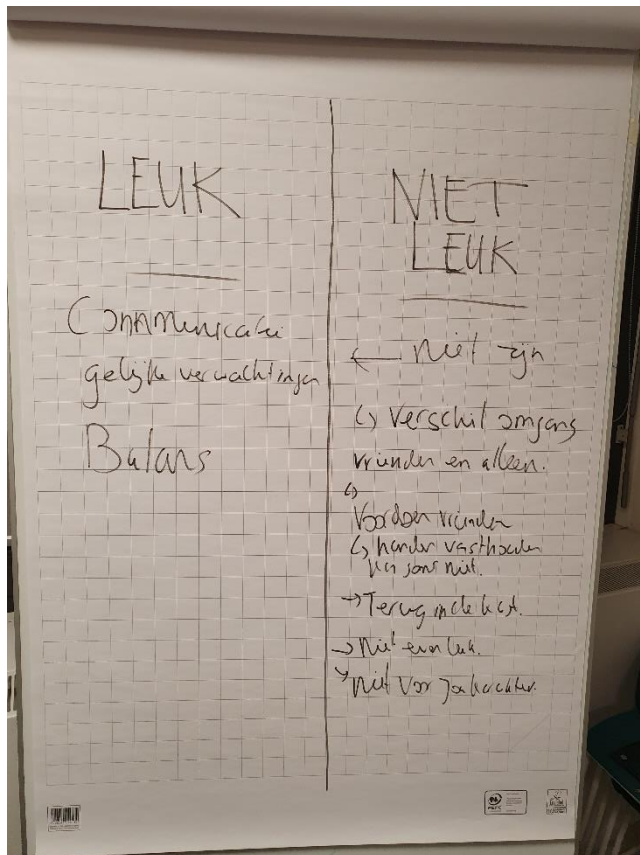 LEUK
Communicatie
gelijke verwachtingen
Balans
NIET
LEUK
← niet zijn
↳ verschil omgang
vrienden en alleen.
↳
Voordoen vrienden
↳ handen vasthouden
jons niet.
→ Terug in de kast.
→ niet even leuk.
→ niet voor karakter.